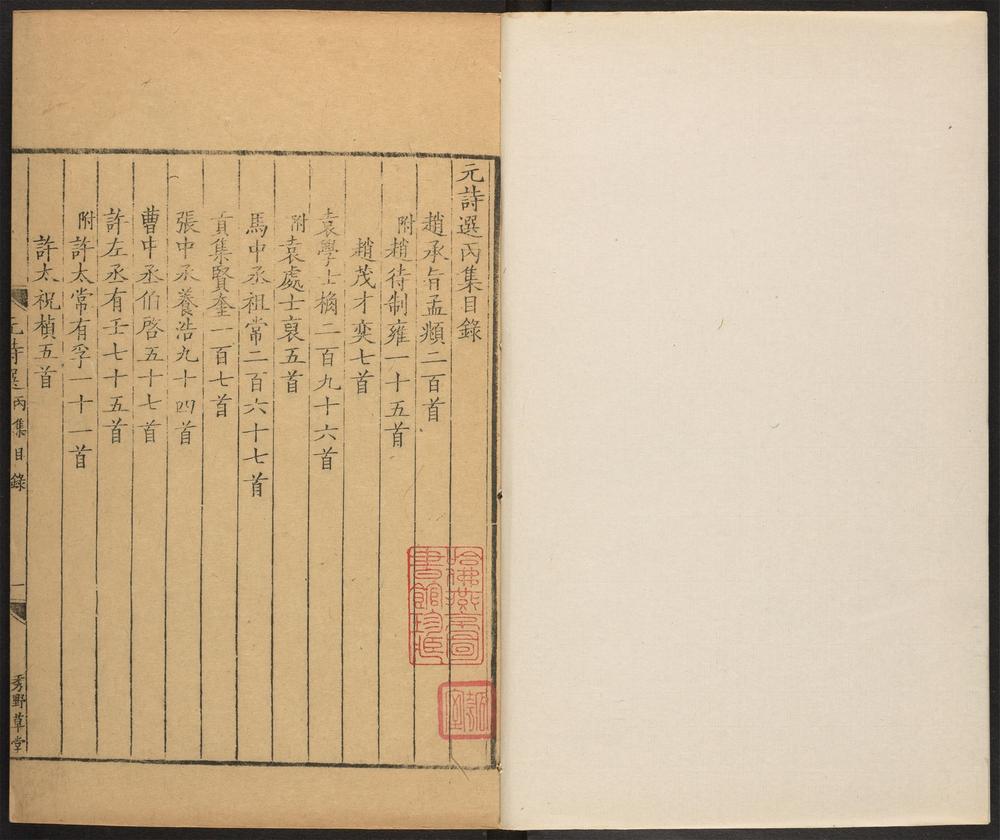 元詩選丙集目錄
趙承旨孟頫二百首
附趙待制雍一十五首
趙茂才奕七首
袁學士桷二百九十六首
附袁處士裒五首
馬中丞祖常二百六十七首
貢集賢奎一百七首
張中丞養浩九十四首
曹中丞伯啓五十七首
許左丞有壬七十五首
附許太常有孚一十一首
許太祝楨五首
元詩選 丙集目錄 一 秀野草堂
哈佛燕京圖
書館珍藏